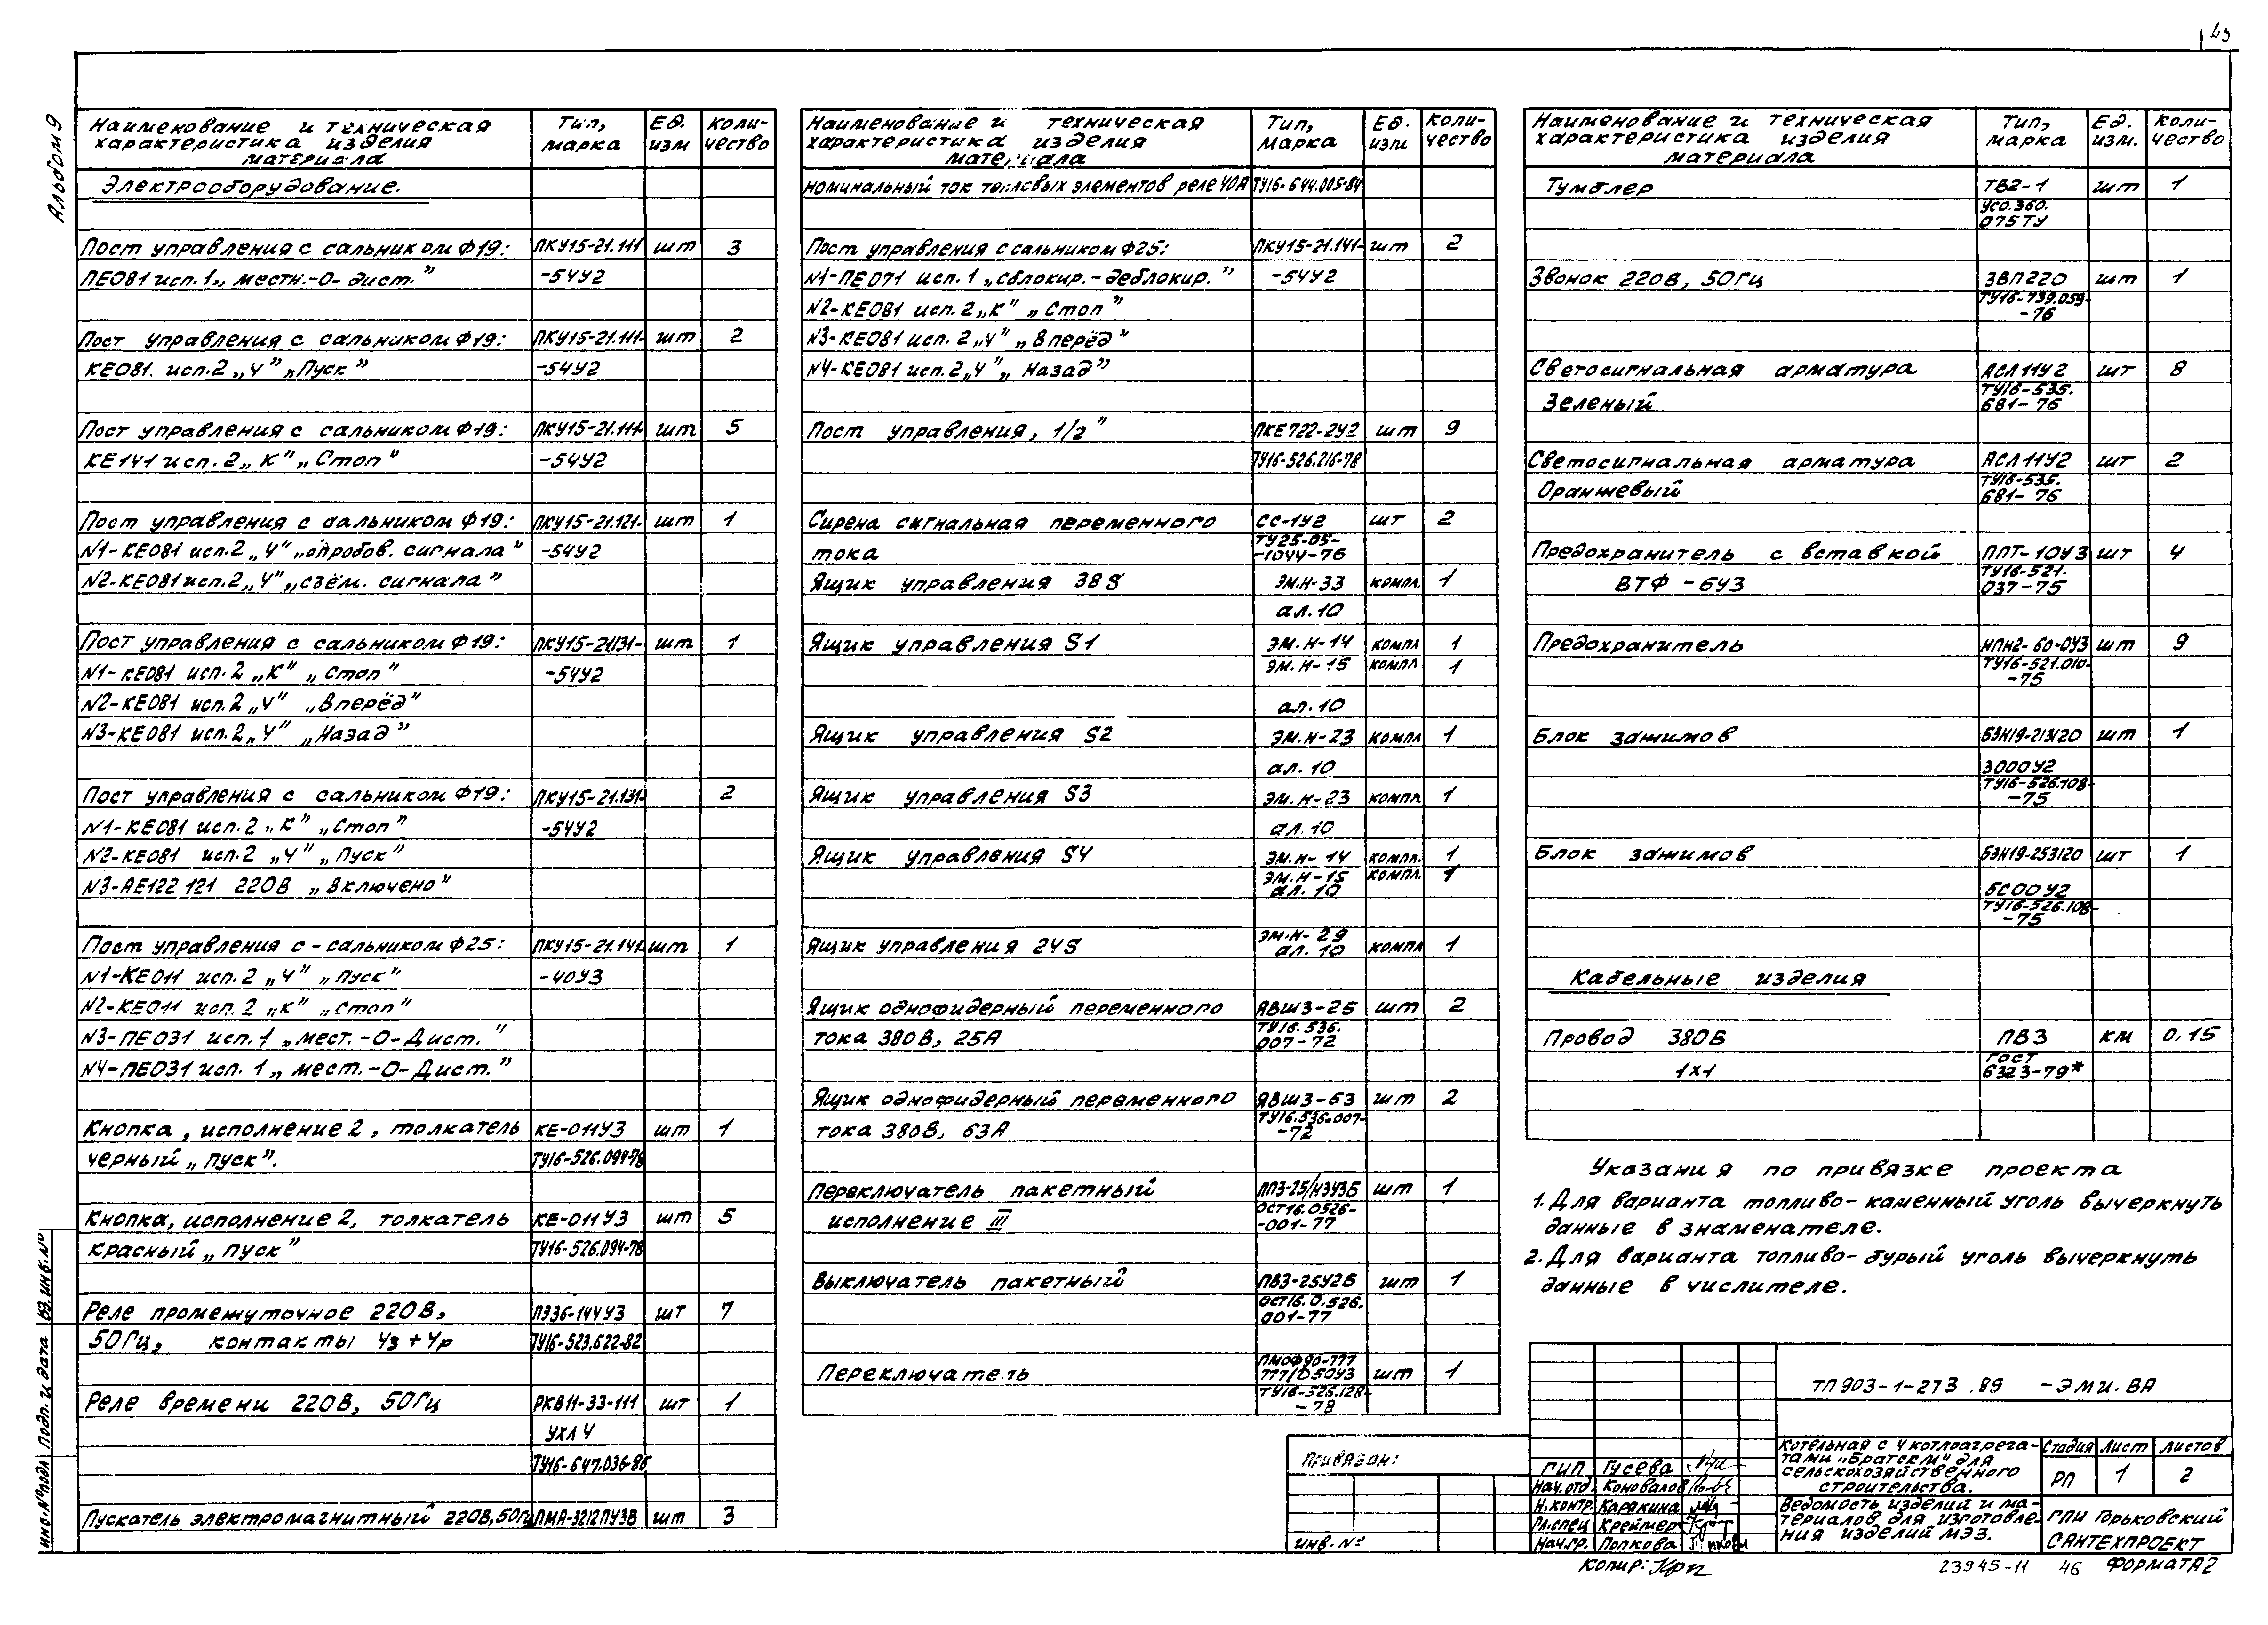 Альбом 9
Наименование и техническая характеристика изделия материала | Тип, марка | Ед. изм | Коли-чество
Электрооборудование.
Пост управления с сальником Ф19: ПКУ15-21.111 шт 3
ПЕ081 исп.1 „местн.-О-дист.” -54У2
Пост управления с сальником Ф19: ПКУ15-21.111- шт 2
КЕ081. исп.2 „Ч” „Пуск” -54У2
Пост управления с сальником Ф19: ПКУ15-21.111- шт 5
КЕ141 исп.2 „К” „Стоп” -54У2
Пост управления с сальником Ф19: ПКУ15-21.121- шт 1
N1-КЕ081 исп.2 „Ч” „опробов. сигнала” -54У2
N2-КЕ081 исп.2 „Ч” „съём. сигнала”
Пост управления с сальником Ф19: ПКУ15-21.131- шт 1
N1-КЕ081 исп.2 „К” „Стоп” -54У2
N2-КЕ081 исп.2 „Ч” „Вперёд”
N3-КЕ081 исп.2 „Ч” „Назад”
Пост управления с сальником Ф19: ПКУ15-21.131- 2
N1-КЕ081 исп.2 „К” „Стоп” -54У2
N2-КЕ081 исп.2 „Ч” „Пуск”
N3-АЕ122 121 220В „Включено”
Пост управления с-сальником Ф25: ПКУ15-21.141- шт 1
N1-КЕ011 исп.2 „Ч” „Пуск” -40У3
N2-КЕ011 исп.2 „К” „Стоп”
N3-ПЕ031 исп.1 „мест.-О-Дист.”
N4-ПЕ031 исп.1 „мест.-О-Дист.”
Кнопка, исполнение 2, толкатель КЕ-011У3 шт 1
черный „Пуск”. ТУ16-526.094-78
Кнопка, исполнение 2, толкатель КЕ-011У3 шт 5
красный „Пуск” ТУ16-526.094-78
Реле промежуточное 220В, ПЭ36-144У3 шт 7
50Гц, контакты 4з+4р ТУ16-523.622-82
Реле времени 220В, 50Гц РКВ11-33-111 шт 1
УХЛ4
ТУ16-647.036-86
Пускатель электромагнитный 220В, 50Гц ПМА-3212ПУ3В шт 3
Наименование и техническая характеристика изделия материала | Тип, марка | Ед. изм | Коли-чество
номинальный ток тепловых элементов реле 40А ТУ16-644.005-84
Пост управления с сальником Ф25: ПКУ15-21.141- шт 2
N1-ПЕ071 исп.1 „сблокир.-деблокир.” -54У2
N2-КЕ081 исп.2 „К” „Стоп”
N3-КЕ081 исп.2 „Ч” „Вперёд”
N4-КЕ081 исп.2 „Ч” „Назад”
Пост управления, 1/2” ПКЕ722-2У2 шт 9
ТУ16-526.216-78
Сирена сигнальная переменного СС-1У2 шт 2
тока ТУ25-05-
-1044-76
Ящик управления 38S ЭМ.Н-33 компл. 1
ал.10
Ящик управления S1 ЭМ.Н-14 компл 1
ЭМ.Н-15 компл 1
ал.10
Ящик управления S2 ЭМ.Н-23 компл 1
ал.10
Ящик управления S3 ЭМ.Н-23 компл 1
ал.10
Ящик управления S4 ЭМ.Н-14 компл. 1
ЭМ.Н-15 компл. 1
ал.10
Ящик управления 24S ЭМ.Н-29 компл 1
ал.10
Ящик однофидерный переменного ЯВШ3-25 шт 2
тока 380В, 25А ТУ16.536.
007-72
Ящик однофидерный переменного ЯВШ3-63 шт 2
тока 380В, 63А ТУ16.536.007-
-72
Переключатель пакетный ПП3-25/Н3У3Б шт 1
исполнение III ОСТ16.0526-
-001-77
Выключатель пакетный ПВ3-25У2Б шт 1
ОСТ16.0.526.
001-77
Переключатель ПМОФ90-777
777/D50У3 шт 1
ТУ16-526.128-
-78
Наименование и техническая характеристика изделия материала | Тип, марка | Ед. изм. | Коли-чество
Тумблер ТВ2-1 шт 1
УСО.360.
075ТУ
Звонок 220В, 50Гц ЗВП220 шт 1
ТУ16-739.059-
-76
Светосигнальная арматура АСЛ11У2 шт 8
Зеленый ТУ16-535.
681-76
Светосигнальная арматура АСЛ11У2 шт 2
Оранжевый ТУ16-535.
681-76
Предохранитель с вставкой ППТ-10У3 шт 4
ВТФ-6У3 ТУ16-521.
037-75
Предохранитель НПН2-60-0У3 шт 9
ТУ16-521.010-
-75
Блок зажимов БЗН19-213120 шт 1
300У2
ТУ16-526.108-
-75
Блок зажимов БЗН19-253120 шт 1
БС00У2
ТУ16-526.108-
-75
Кабельные изделия
Провод 380В ПВ3 км 0.15
1x1 ГОСТ
6323-79*
Указания по привязке проекта
1. Для варианта топливо-каменный уголь вычеркнуть
данные в знаменателе.
2. Для варианта топливо-бурый уголь вычеркнуть
данные в числителе.
ТП903-1-273.89 -ЭМИ.ВА
Привязан:
инв.№
ГИП Гусева
Нач.отд. Коновалов
Н.контр. Карякина
Гл.спец Креймер
Нач.гр. Попкова
Котельная с 4 котлоагрега-
тами „Братск М” для
сельскохозяйственного
строительства.
Стадия Лист Листов
РП 1 2
Ведомость изделий и ма-
териалов для изготовле-
ния изделий МЭЗ.
ГПИ Горьковский
САНТЕХПРОЕКТ
Копир:
23945-11 46 ФОРМАТ А2
Инв.№подл Подп. и дата Вз.инв.№